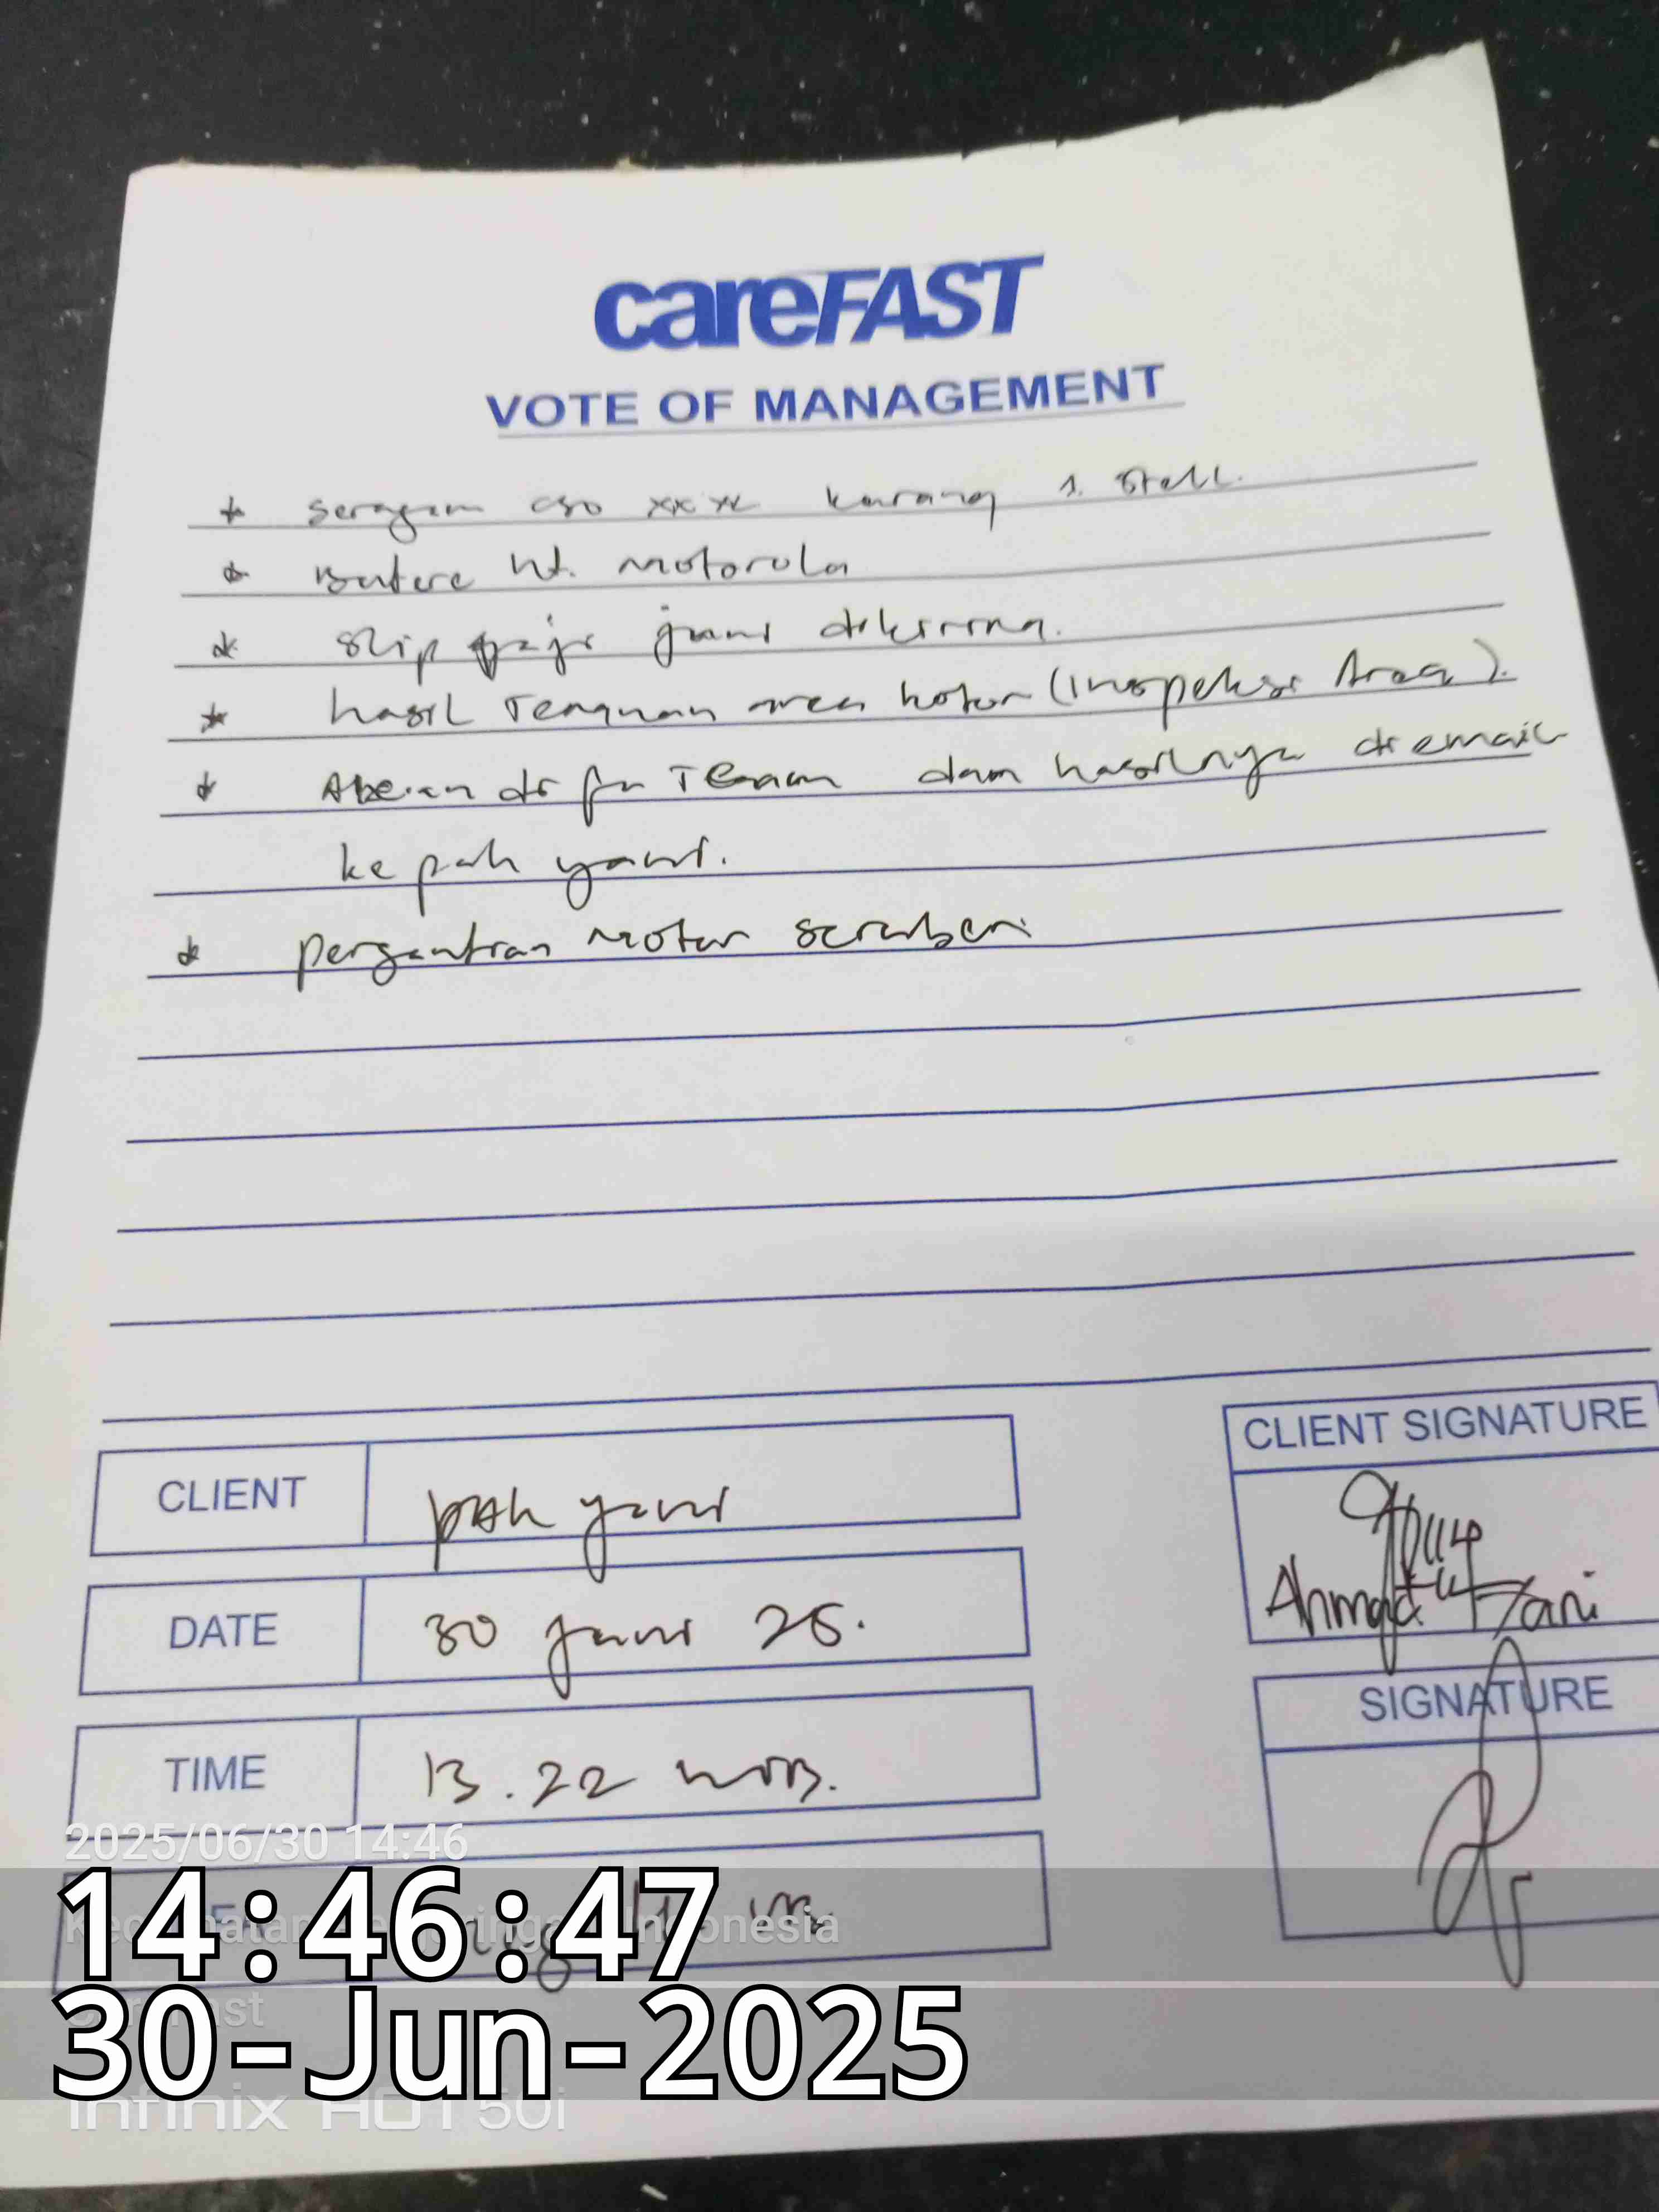 careFAST
VOTE OF MANAGEMENT
* seragam cso xxxL kurang 1. Stell.
* Batere ht. motorola
* slip gaji juni dikirim.
* hasil Temuan area kotor (Inspeksi Area).
* dan hasilnya di email
ke pak yani.
* pergantian motor scruberi
CLIENT pak yani
DATE 30 Juni 25.
TIME 13.22 WIB.
CLIENT SIGNATURE
Ahmad Yani
SIGNATURE
2025/06/30 14:46
14:46:47
Indonesia
30-Jun-2025
Infinix HOT 50i